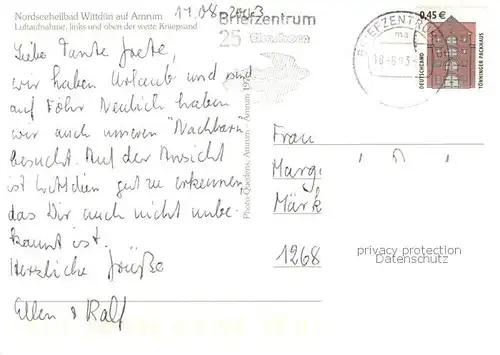 Nordseeheilbad Wittdün auf Amrum
Luftaufnahme, links und oben der weite Kniepsand
17.08.2003
Briefzentrum
25
Elmshorn
BRIEFZENTRUM
ma
18.-8.03-
0,45 €
DEUTSCHLAND
TÖNNINGER PACKHAUS
Liebe Tante Grete,
wir haben Urlaub und sind
auf Föhr. Neulich haben
wir auch unseren "Nachbarn"
besucht. Auf der Ansicht
ist Wittdün gut zu erkennen,
das Dir auch nicht unbe-
kannt ist.
Herzliche Grüße
Ellen & Ralf
Photo-Quedens, Amrum - Amrum
Frau
Marg
Märk
1268
privacy protection
Datenschutz